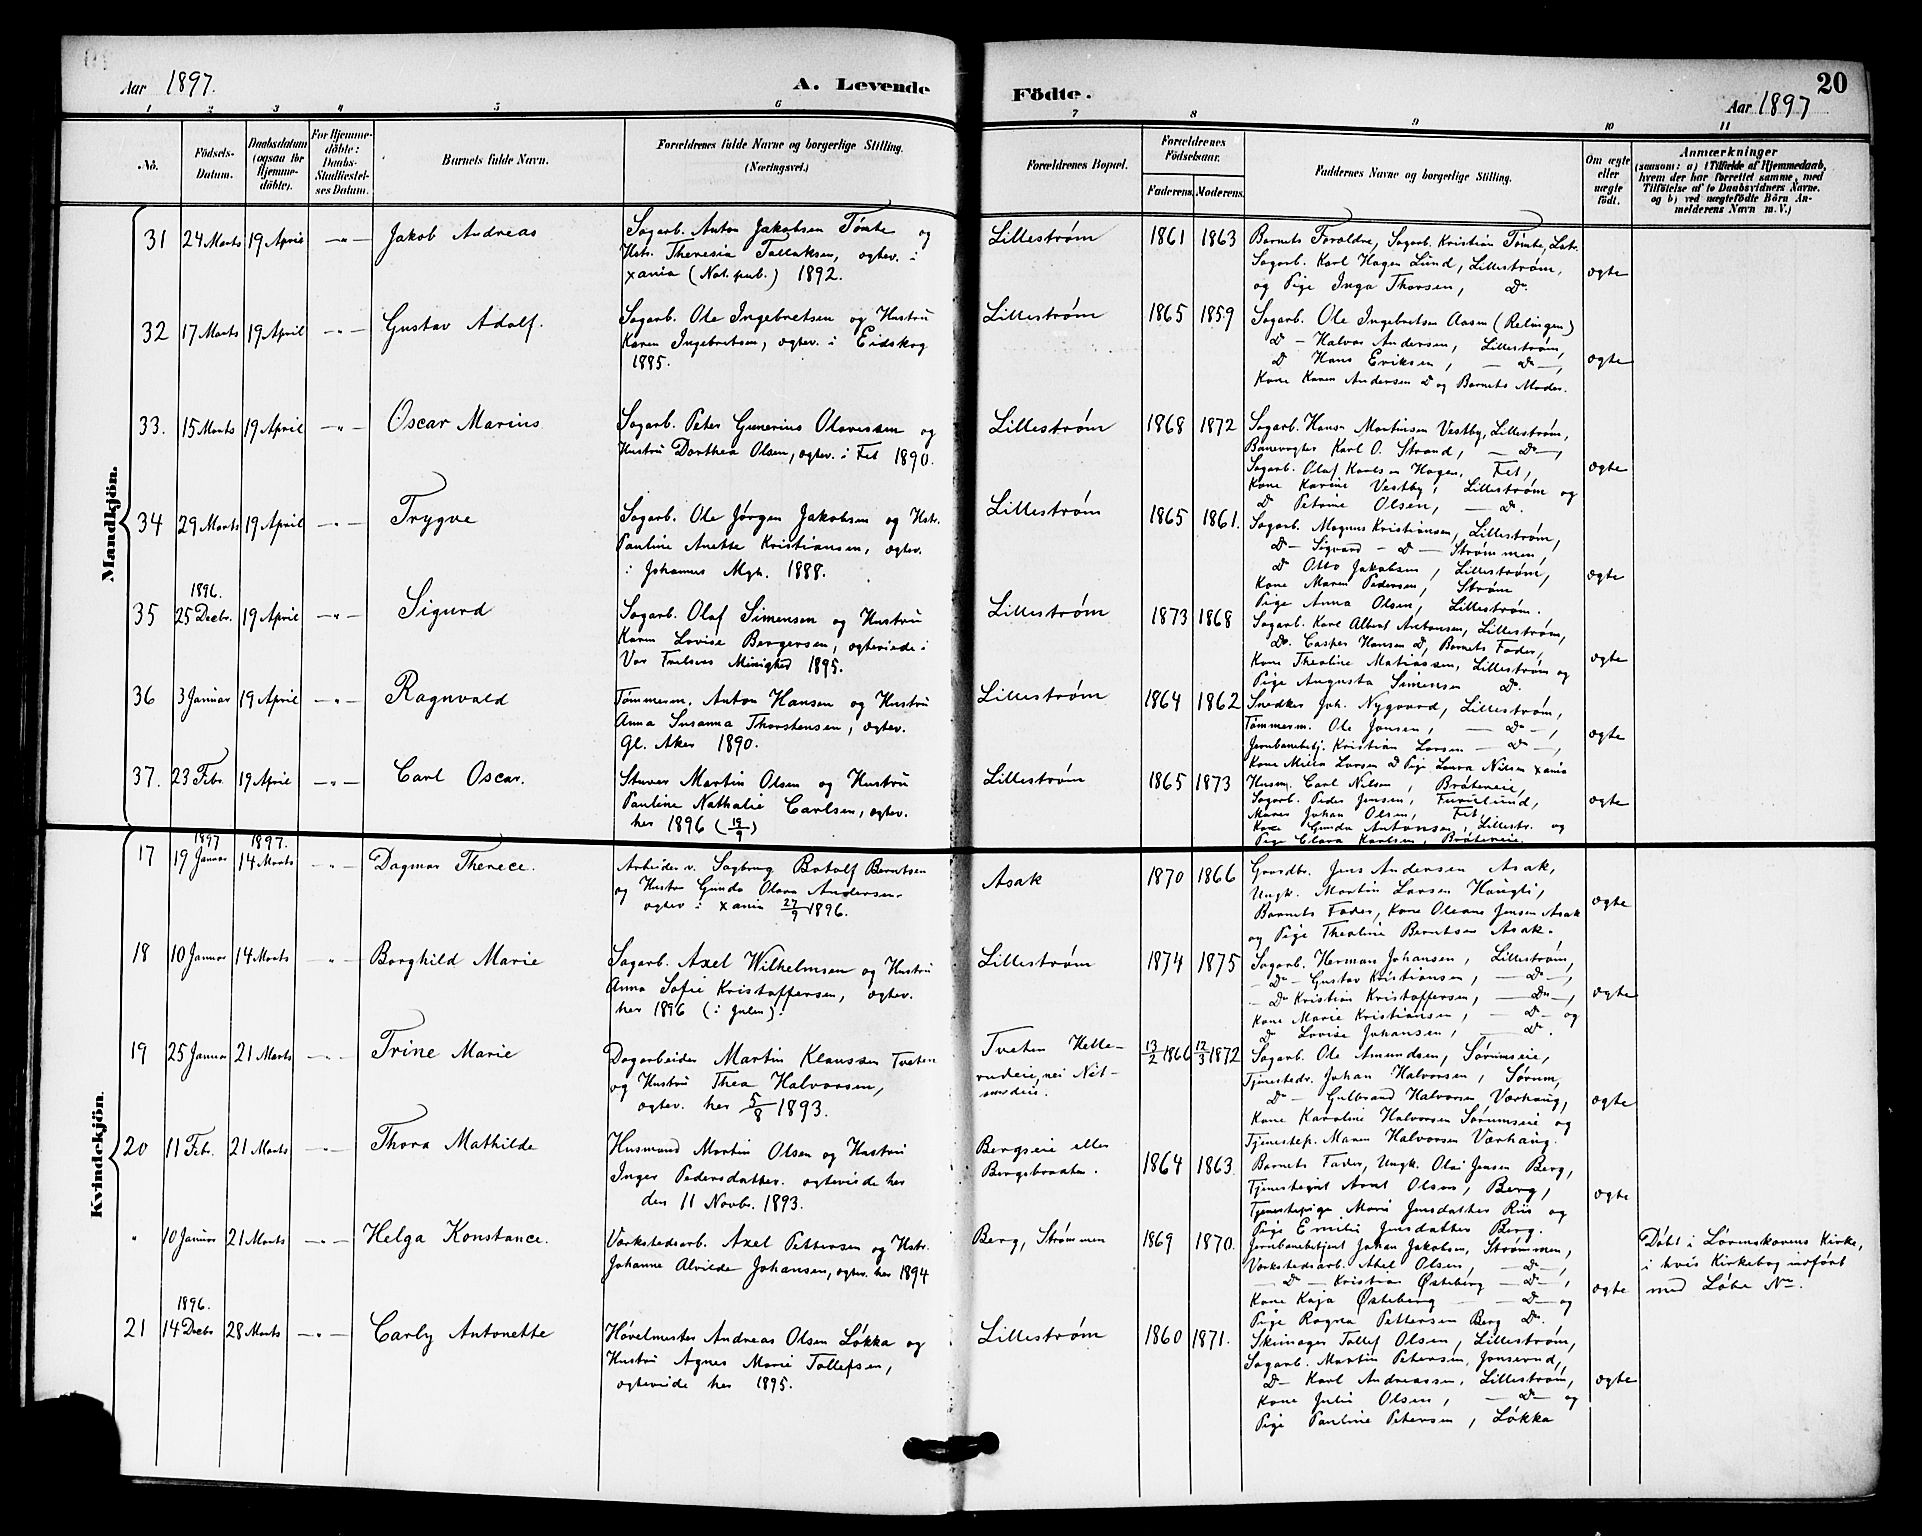 Aar 1897.
A. Levende Födte.
20
Aar 1897
1 2 3 4 5 6 7 8 9 10 11
No.
Födsels-Datum.
Daabsdatum (ogsaa for Hjemmedöbte).
For Hjemmedöbte: Daabs-Stadfæstelses Datum.
Barnets fulde Navn.
Forældrenes fulde Navne og borgerlige Stilling. (Næringsvei.)
Forældrenes Bopæl.
Forældrenes Födselsaar.
Faderens. Moderens.
Faddernes Navne og borgerlige Stilling.
Om ægte eller uægte födt.
Anmærkninger
(saasom: a) i Tilfælde af Hjemmedaab,
hvem der har forrettet samme, med
Tilföielse af to Daabsvidners Navne.
og b) ved uægtefödte Börn An-
melderens Navn m. V.)
Mandkjön.
31 24 Marts 19 April - " - Jakob Andreas
Sagarb. Anton Jakobsen Tømte og
Hstr. Theresia Tollaksen, ægtev. i
Xania (Not. pub.) 1892.
Lillestrøm 1861 1863
Barnets Forældre, Sagarb. Kristian Tømte, Lstr.
Sagarb. Karl Hagen Lund, Lillestrøm,
og Pige Inga Thorsen, Do.
ægte
32 17 Marts 19 April - " - Gustav Adolf.
Sagarb. Ole Ingebretsen og Hustru
Karen Ingebretsen, ægtev. i Eidskog
1885.
Lillestrøm 1865 1859
Sagarb. Ole Ingebretsen Aasen (Relingen)
D - Halvor Andersen, Lillestrøm,
D Hans Eriksen, - Do -,
Kone Karen Andersen D og Barnets Moder.
ægte
33. 15 Marts 19 April - " - Oscar Marius
Sagarb. Peter Gunerius Olavesen og
Hustru Dorthea Olsen, ægtev. i Fet 1890.
Lillestrøm 1868 1872
Sagarb. Hans Martinsen Vestby, Lillestrøm,
Banevogter Karl O. Strand, - Do -,
Sagarb. Olaf Karlsen Hagen, Fet,
Kone Karine Vestby, Lillestrøm og
D Petrine Olsen, - Do.
ægte
34 29 Marts 19 April - " - Trygve
Sagarb. Ole Jørgen Jakobsen og Hstr.
Pauline Anette Kristiansen, ægtev.
i Johannes Mgh. 1888.
Lillestrøm 1865 1861.
Sagarb. Magnus Kristiansen, Lillestrøm,
D - Sigvard - D - Strømmen,
D Otto Jakobsen, Lillestrøm,
Kone Maren Pedersen, Strøm
Pige Anna Olsen, Lillestrøm.
ægte
1896.
35 25 Decbr. 19 April - " - Sigurd
Sagarb. Olaf Simensen og Hustru
Karen Lovise Bergersen, ægteviede i
Vor Frelsers Menighed 1895.
Lillestrøm 1873 1868
Sagarb. Karl Albert Antonsen, Lillestrøm,
Do. Casper Hansen D, Barnets Fader,
Kone Theoline Matiassen, Lillestrøm og
Pige Augusta Simensen Do.
ægte
36 3 Januar 19 April - " - Ragnvald
Tømmerm. Anton Hansen og Hustru
Anna Susanna Thorstensen, ægtev.
Gl. Aker 1890.
Lillestrøm 1864 1862
Snedker Joh. Nygaard, Lillestrøm,
Tømmerm. Ole Jonsen, - Do -,
Jernbanebetj. Kristian Larsen - D -,
Kone Milla Larsen D Pige Laura Nilsen Xania
ægte
37. 23 Febr. 19 April - " - Carl Oscar.
Stuver Martin Olsen og Hustru
Pauline Nathalie Carlsen, ægtev.
her 1896 (19/9)
Lillestrøm 1865 1873
Husm. Carl Nilsen, Bråteneie,
Sagarb. Peder Jensen, Furulund,
Maler Johan Olsen, Fet,
Kone Gunda Antonsen, Lillestr. og
Pige Clara Karlsen, Bråteneie.
ægte
Kvindekjön.
1897 1897.
17 19 Januar 14 Marts - " - Dagmar Therece.
Arbeider v. Sagbrug Botolf Berntsen
og Hustru Gunda Olava Andersen.
ægtev i Xania 27/9 1896.
Asak 1870 1866
Gaardbr. Jens Andersen Asak,
Ungk. Martin Larsen Haugli,
Barnets Fader, Kone Oleane Jensen Asak
og Pige Theoline Berntsen Asak.
ægte
18 10 Januar 14 Marts " Borghild Marie
Sagarb. Axel Wilhelmsen og Hustru
Anna Sofie Kristoffersen, ægtev.
her 1896 (i Julen).
Lillestrøm 1874 1875
Sagarb. Herman Johansen, Lillestrøm,
- Do - Gustav Kristiansen, - Do -,
- Do Kristian Kristoffersen, - Do -,
Kone Marie Kristiansen, - D - og
Do Lovise Johansen, - D.
ægte
19 25 Januar 21 Marts - " - Trine Marie
Dagarbeider Martin Klaussen Tveten
og Hustru Thea Halvorsen,
ægtev. her 5/8 1893.
Tveten Helle-
rudeie, nei Nit-
sundeie.
13/2 1866 12/3 1872
Sagarb. Ole Amundsen, Sørumseie,
Tjenestedr. Johan Halvorsen, Sørum,
D - Gulbrand Halvorsen Værhaug,
Kone Karoline Halvorsen Sørumseie og
Tjenestep. Maren Halvorsen Værhaug.
ægte
20 11 Febr. 21 Marts - " - Thora Mathilde
Husmand Martin Olsen og Hustru
Inger Pedersdatter. ægteviede her
den 11 Novbr. 1893.
Bergseie eller
Bergsbraaten.
1864 1863.
Barnets Fader, Ungk. Olai Jensen Berg,
Tjenestegut Axel Olsen, Berg,
Tjenestepige Marie Jensdatter Riis og
Pige Emilie Jensdatter Berg.
ægte
" 10 Januar 21 Marts - " - Helga Konstance.
Værkstedsarb. Axel Pettersen og Hstr.
Johanne Alvilde Johansen, ægtev. her 1894
Berg, Strømmen 1869 1870.
Jernbanebetjent Johan Jakobsen, Strømmen,
Værkstedsarb. Abel Olsen, - D -,
- D - Kristian Østeberg - D -,
Kone Kaja Østeberg - D - og
Pige Ragna Pettersen Berg Do.
ægte
Döbt i Lørenskovens Kirke,
i hvis Kirkebog indført
med Løbe No.
1896.
21 14 Decbr 28 Marts - " - Carly Antonette
Høvelmester Andreas Olsen Løkka og
Hustru Agnes Marie Tollefsen,
ægteviede her 1895.
Lillestrøm 1860 1871.
Skrinager Tollef Olsen, Lillestrøm,
Sagarb. Martin Petersen, Jonsrud,
D - Karl Andreassen, Lillestrøm,
Kone Julie Olsen, - D - og
Pige Pauline Petersen, Løkka
ægte